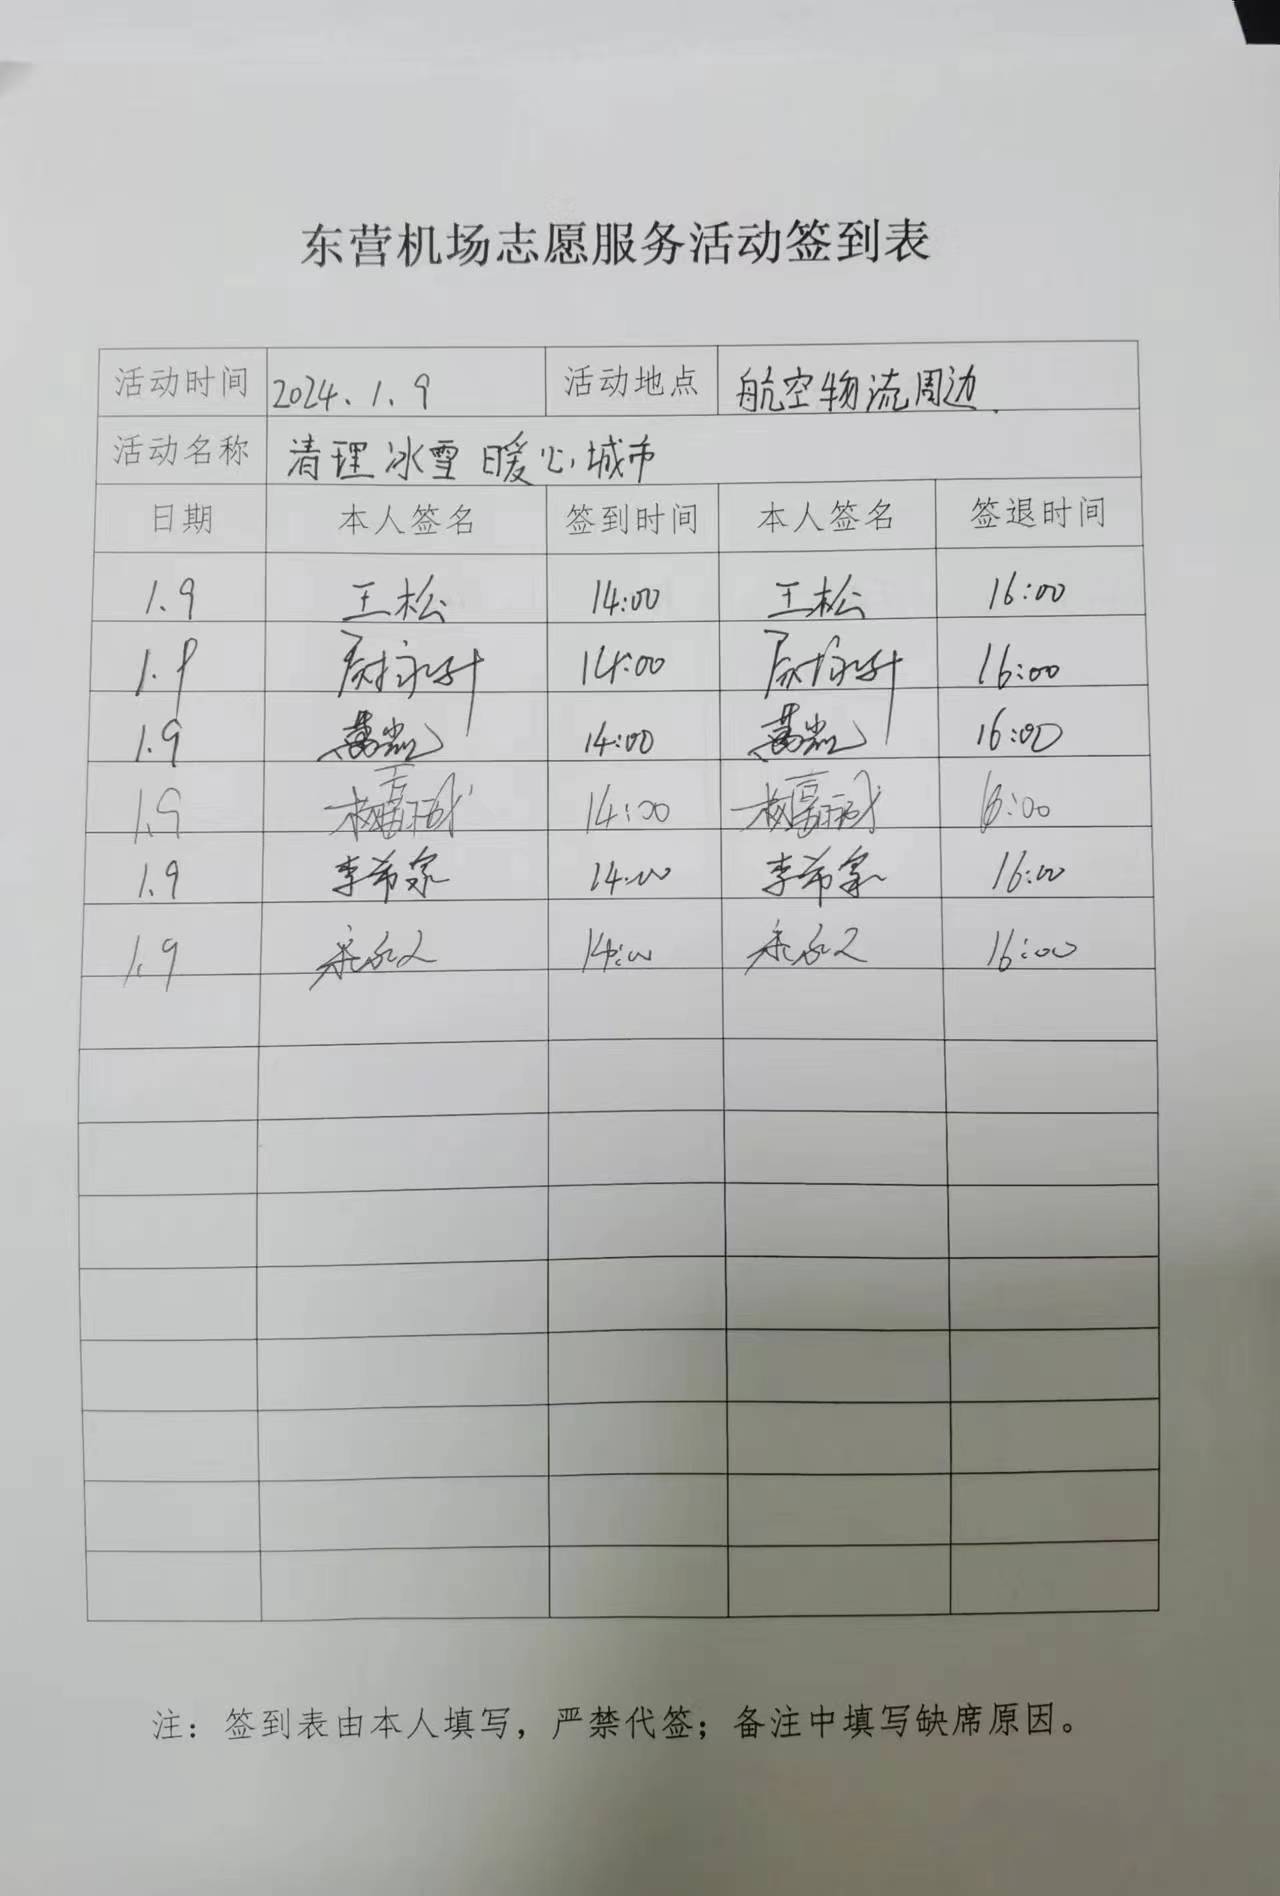 东营机场志愿服务活动签到表
活动时间 2024.1.9 活动地点 航空物流周边.
活动名称 清理冰雪 暖心城市
日期 本人签名 签到时间 本人签名 签退时间
1.9 王松 14:00 王松 16:00
1.9 14:00 16:00
1.9 14:00 16:00
1.9 14:00 16:00
1.9 李希 14:00 李希 16:00
1.9 14:00 16:00
注：签到表由本人填写，严禁代签；备注中填写缺席原因。